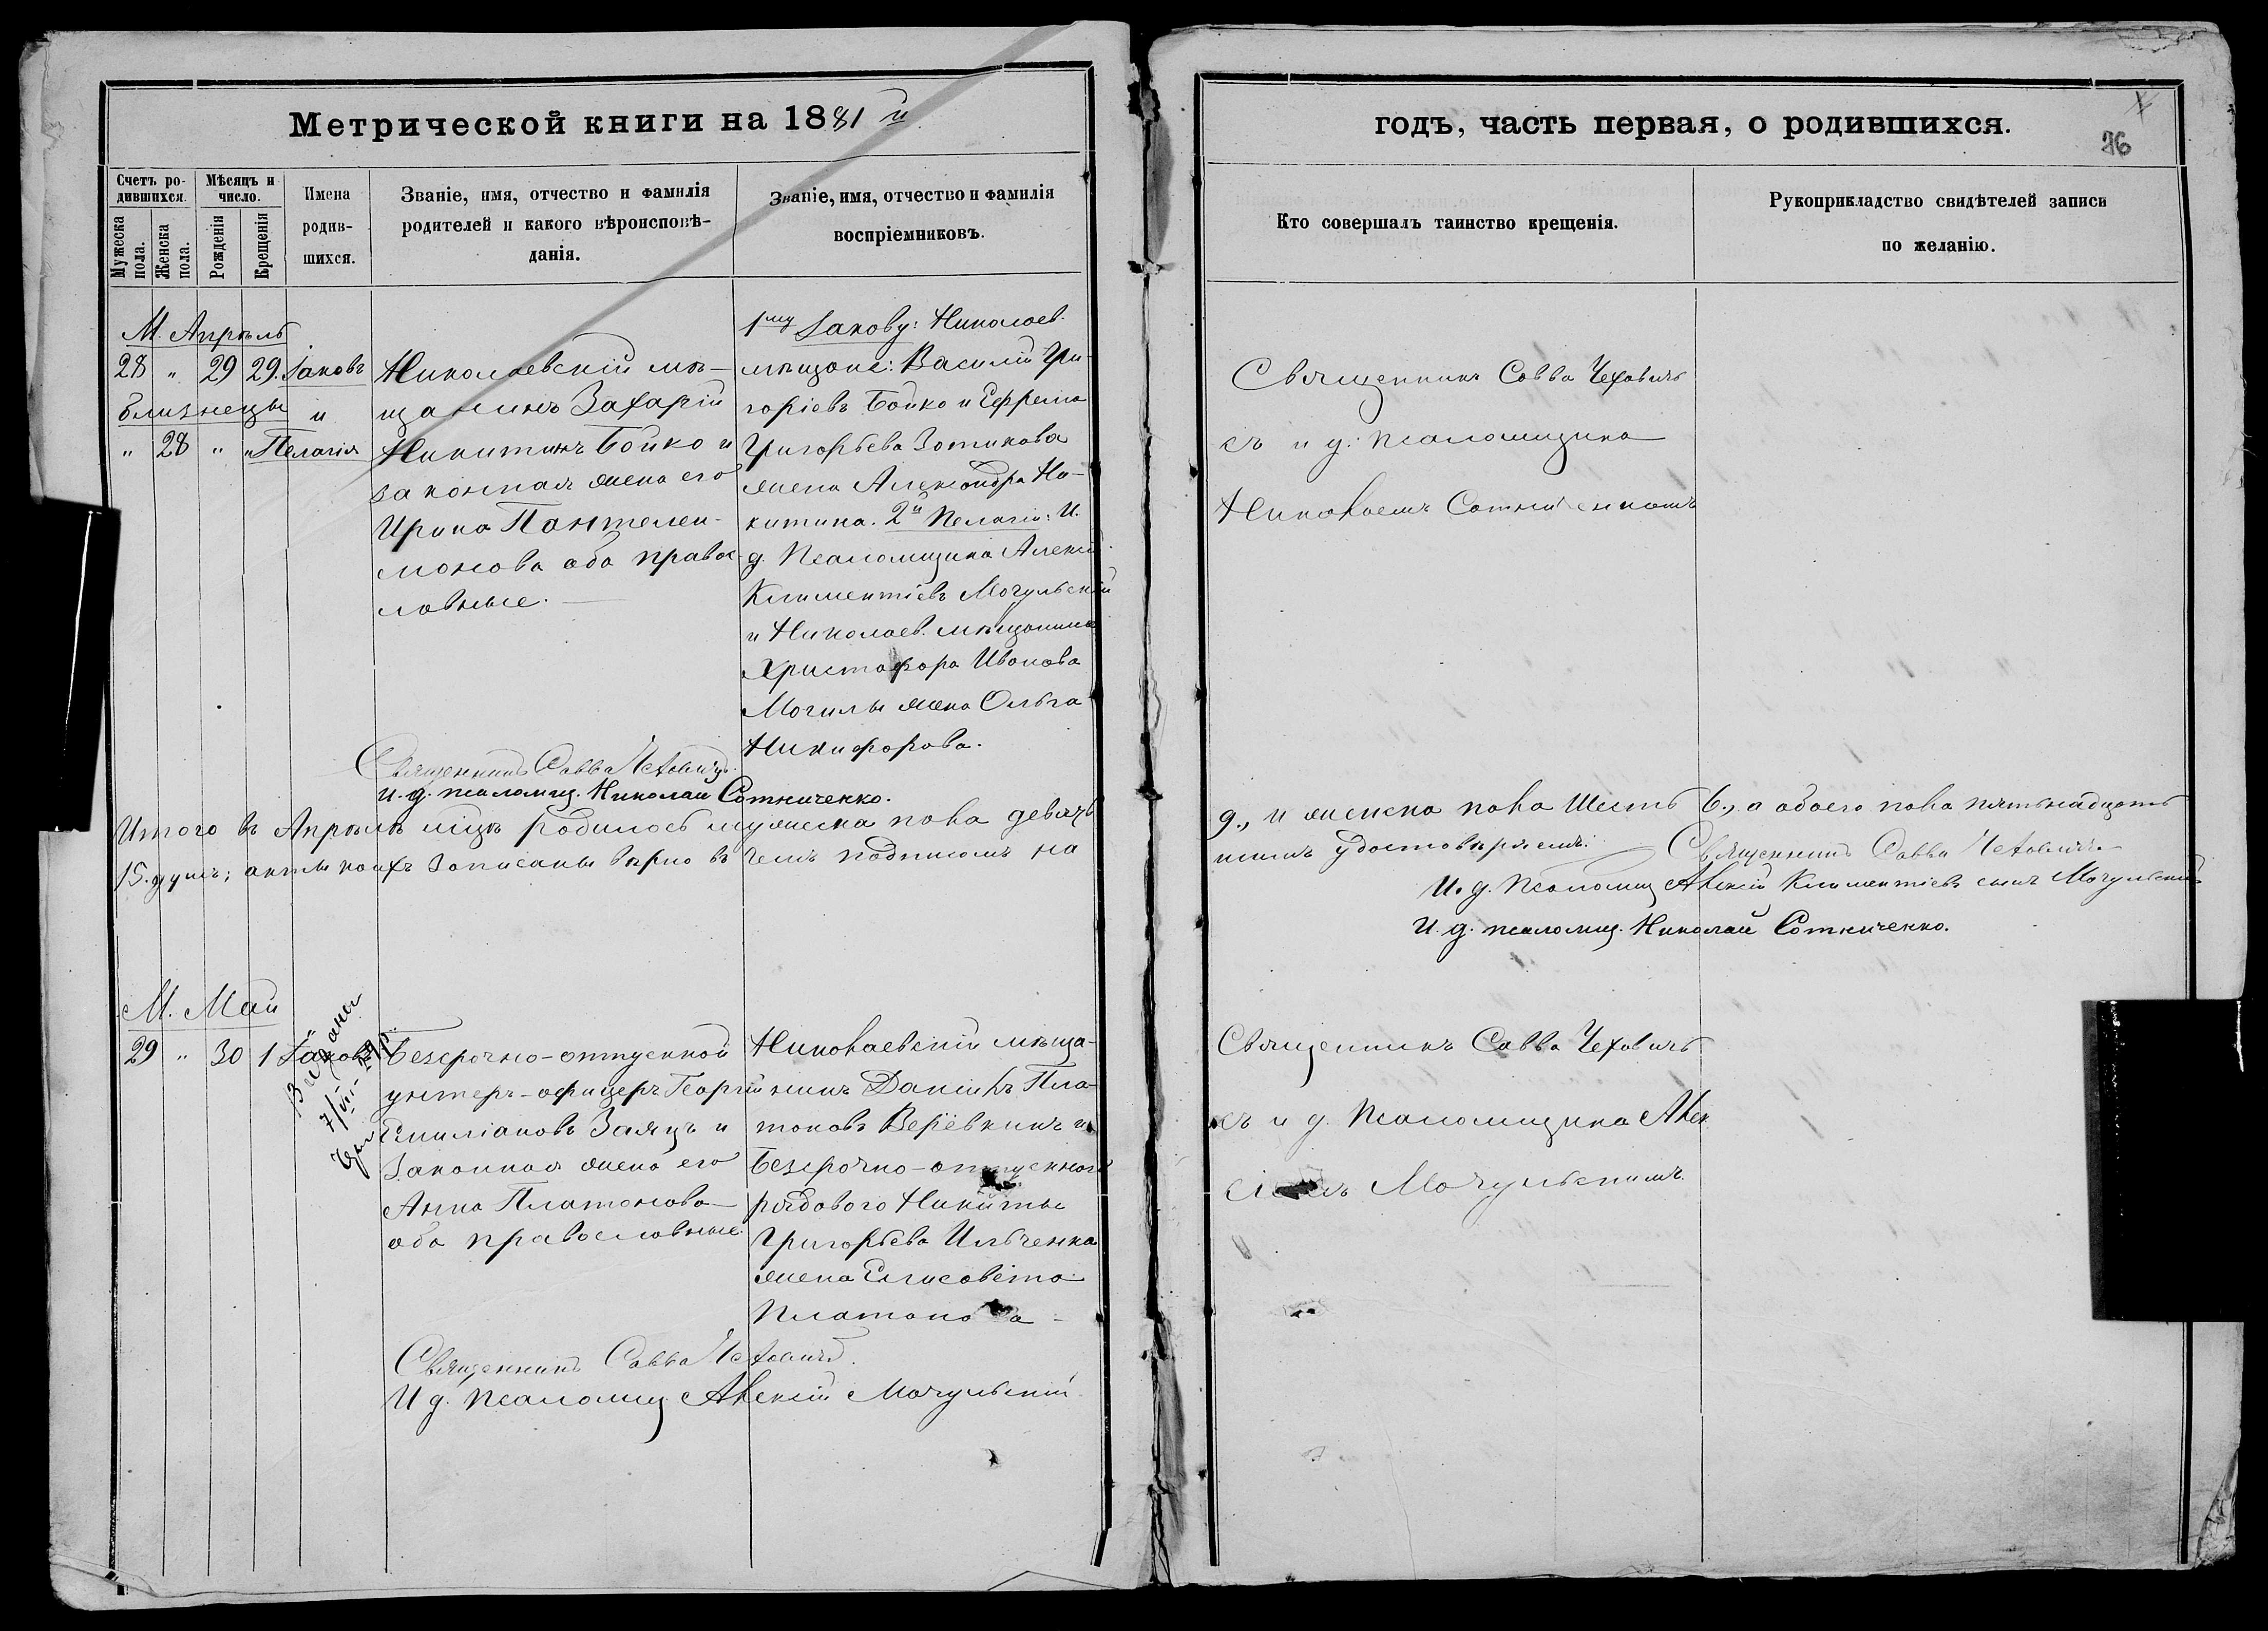 Метрической книги на 1881 й
годъ, часть первая, о родившихся.
76
Счетъ родившихся.
Мужеска пола.
Женска пола.
Мѣсяцъ и число.
Рожденія
Крещенія
Имена родившихся.
Званіе, имя, отчество и фамилія
родителей и какого вѣроисповѣ-
данія.
Званіе, имя, отчество и фамилія
воспріемниковъ.
Кто совершалъ таинство крещенія.
Рукоприкладство свидѣтелей записи
по желанію.
М. Апрѣль
28 " 29 29. Іаковъ
близнецы и
" 28 " " Пелагія
Николаевскій мѣ-
щанинъ Захарій
Никитинъ Бойко и
законная жена его
Ирина Пантелеи-
монова оба правос-
лавные.
1му Іакову: Николаев.
мѣщане: Василій Гри-
горіевъ Бойко и Ефрема
Григорьева Зотикова
жена Александра Ни-
китина. 2й Пелагіи: И.
д. Псаломщика Алексій
Климентіевъ Мочульскій
и Николаев. мѣщанина
Христофора Иванова
Могилы жена Ольга
Никифорова.
Священникъ Савва Чеховичъ
съ и д. псаломщика
Николаемъ Сотниченкомъ
Священникъ Савва Чеховичъ.
И. д. псаломщ. Николай Сотниченко.
Итого въ Апрѣлѣ мцѣ родилось мужеска пола девять
9., и женска пола шесть 6., а обоего пола пятьнадцать
15. душъ; акты коихъ записаны вѣрно въ чемъ подписомъ на
шимъ удостовѣряемъ: Священникъ Савва Чеховичъ.
И. д. Псаломщ Алексій Климентіевъ сынъ Мочульскій
И. д. псаломщ. Николай Сотниченко.
М. Май
29 " 30 1 Іаковъ
Безсрочно-отпускной
унтеръ-офицеръ Георгій
Емиліановъ Заяцъ и
Законная жена его
Анна Платонова
оба православные.
Николаевскій мѣща-
нинъ Даніилъ Пла-
тоновъ Верёвкинъ и
Безсрочно-отпускного
рядового Никиты
Григорьева Ильченка
жена Елисавета
Платонова
Священникъ Савва Чеховичъ
съ и д. Псаломщика Алек
сіемъ Мочульскимъ.
Священникъ Савва Чеховичъ.
И д. Псаломщ Алексій Мочульскій